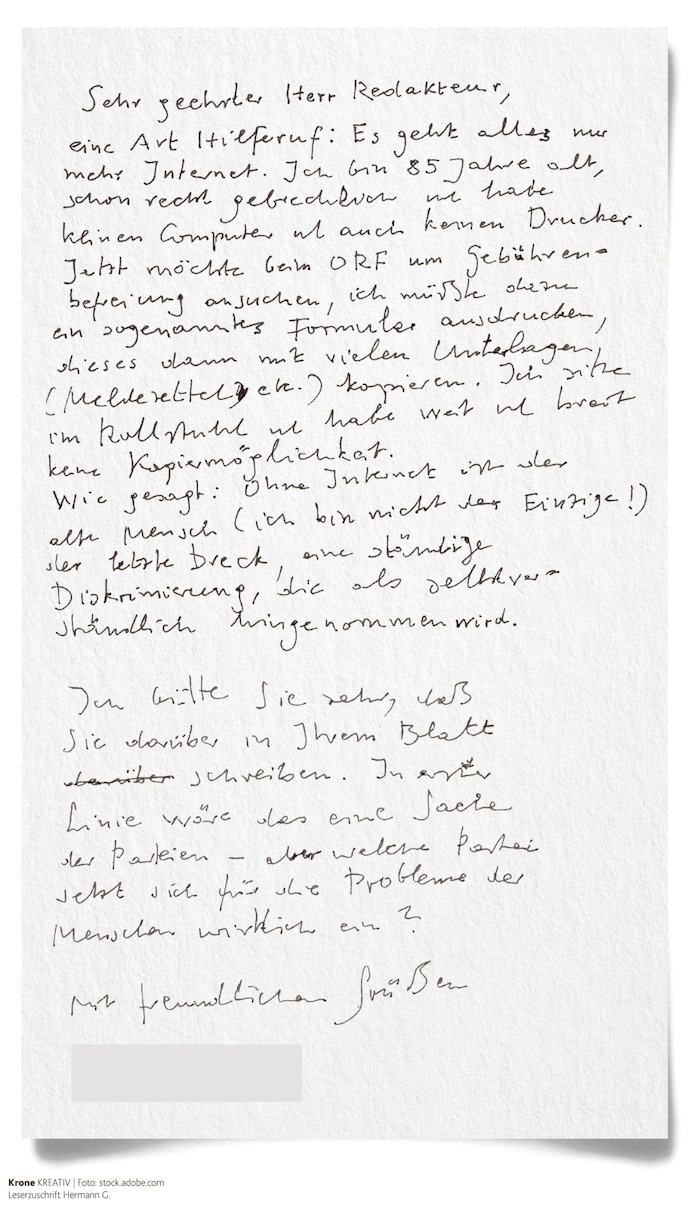 Sehr geehrter Herr Redakteur,
eine Art Hilferuf: Es geht alles nur
mehr Internet. Ich bin 85 Jahre alt,
schon recht gebrechlich u habe
keinen Computer u auch keinen Drucker.
Jetzt möchte beim ORF um Gebühren-
befreiung ansuchen, ich müßte dazu
ein sogenanntes Formular ausdrucken,
dieses dann mit vielen Unterlagen,
(Meldezettel, etc.) kopieren. Ich sitze
im Rollstuhl u habe weit u breit
keine Kopiermöglichkeit.
Wie gesagt: Ohne Internet ist der
alte Mensch (ich bin nicht der Einzige!)
der letzte Dreck, eine ständige
Diskriminierung, die als selbstver-
ständlich hingenommen wird.
Ich bitte Sie sehr, daß
Sie darüber in Ihrem Blatt
darüber schreiben. In erster
Linie wäre das eine Sache
der Parteien – aber welche Partei
setzt sich für die Probleme der
Menschen wirklich ein?
Mit freundlichen Grüßen
Krone KREATIV | Foto: stock.adobe.com
Leserzuschrift Hermann G.